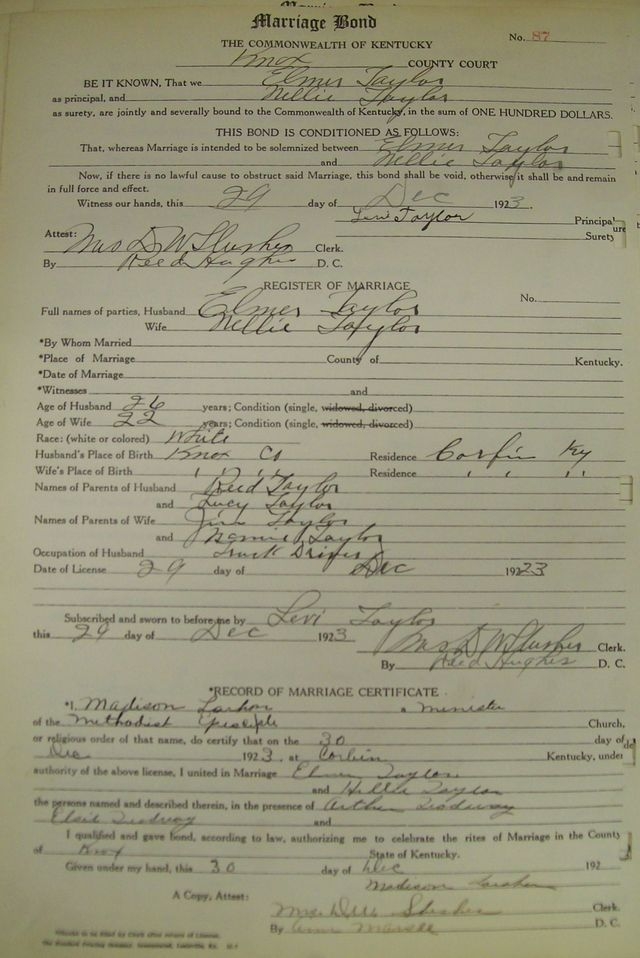 Marriage Bond
No. 87
THE COMMONWEALTH OF KENTUCKY
Knox COUNTY COURT
BE IT KNOWN, That we Elmer Taylor
as principal, and Nellie Taylor
as surety, are jointly and severally bound to the Commonwealth of Kentucky, in the sum of ONE HUNDRED DOLLARS.
THIS BOND IS CONDITIONED AS FOLLOWS:
That, whereas Marriage is intended to be solemnized between Elmer Taylor
and Nellie Taylor
Now, if there is no lawful cause to obstruct said Marriage, this bond shall be void, otherwise it shall be and remain
in full force and effect.
Witness our hands, this 29 day of Dec 1923.
Levi Taylor Principal
Surety
Attest:
Mrs D W Slusher Clerk.
By Reed Hughes D. C.
REGISTER OF MARRIAGE
No.
Full names of parties, Husband Elmer Taylor
Wife Nellie Taylor
*By Whom Married
*Place of Marriage County of Kentucky.
*Date of Marriage
*Witnesses and
Age of Husband 26 years; Condition (single, widowed, divorced)
Age of Wife 22 years; Condition (single, widowed, divorced)
Race: (white or colored) White
Husband's Place of Birth Knox Co Residence Corbin Ky
Wife's Place of Birth " " Residence " "
Names of Parents of Husband Reed Taylor
and Lucy Taylor
Names of Parents of Wife Jim Taylor
and Taylor
Occupation of Husband Truck Driver
Date of License 29 day of Dec 1923
Subscribed and sworn to before me by Levi Taylor
this 29 day of Dec 1923
Mrs D W Slusher Clerk.
By Reed Hughes D. C.
*RECORD OF MARRIAGE CERTIFICATE
*I, Madison a Minister
of the Methodist Church,
or religious order of that name, do certify that on the 30 day of
Dec 1923. at Corbin Kentucky, under
authority of the above license, I united in Marriage Elmer Taylor
and Taylor
the persons named and described therein, in the presence of Arthur
and
I qualified and gave bond, according to law, authorizing me to celebrate the rites of Marriage in the County
of Knox State of Kentucky.
Given under my hand, this 30 day of Dec 192
Madison
A Copy, Attest:
Mrs D W Slusher Clerk.
By D. C.